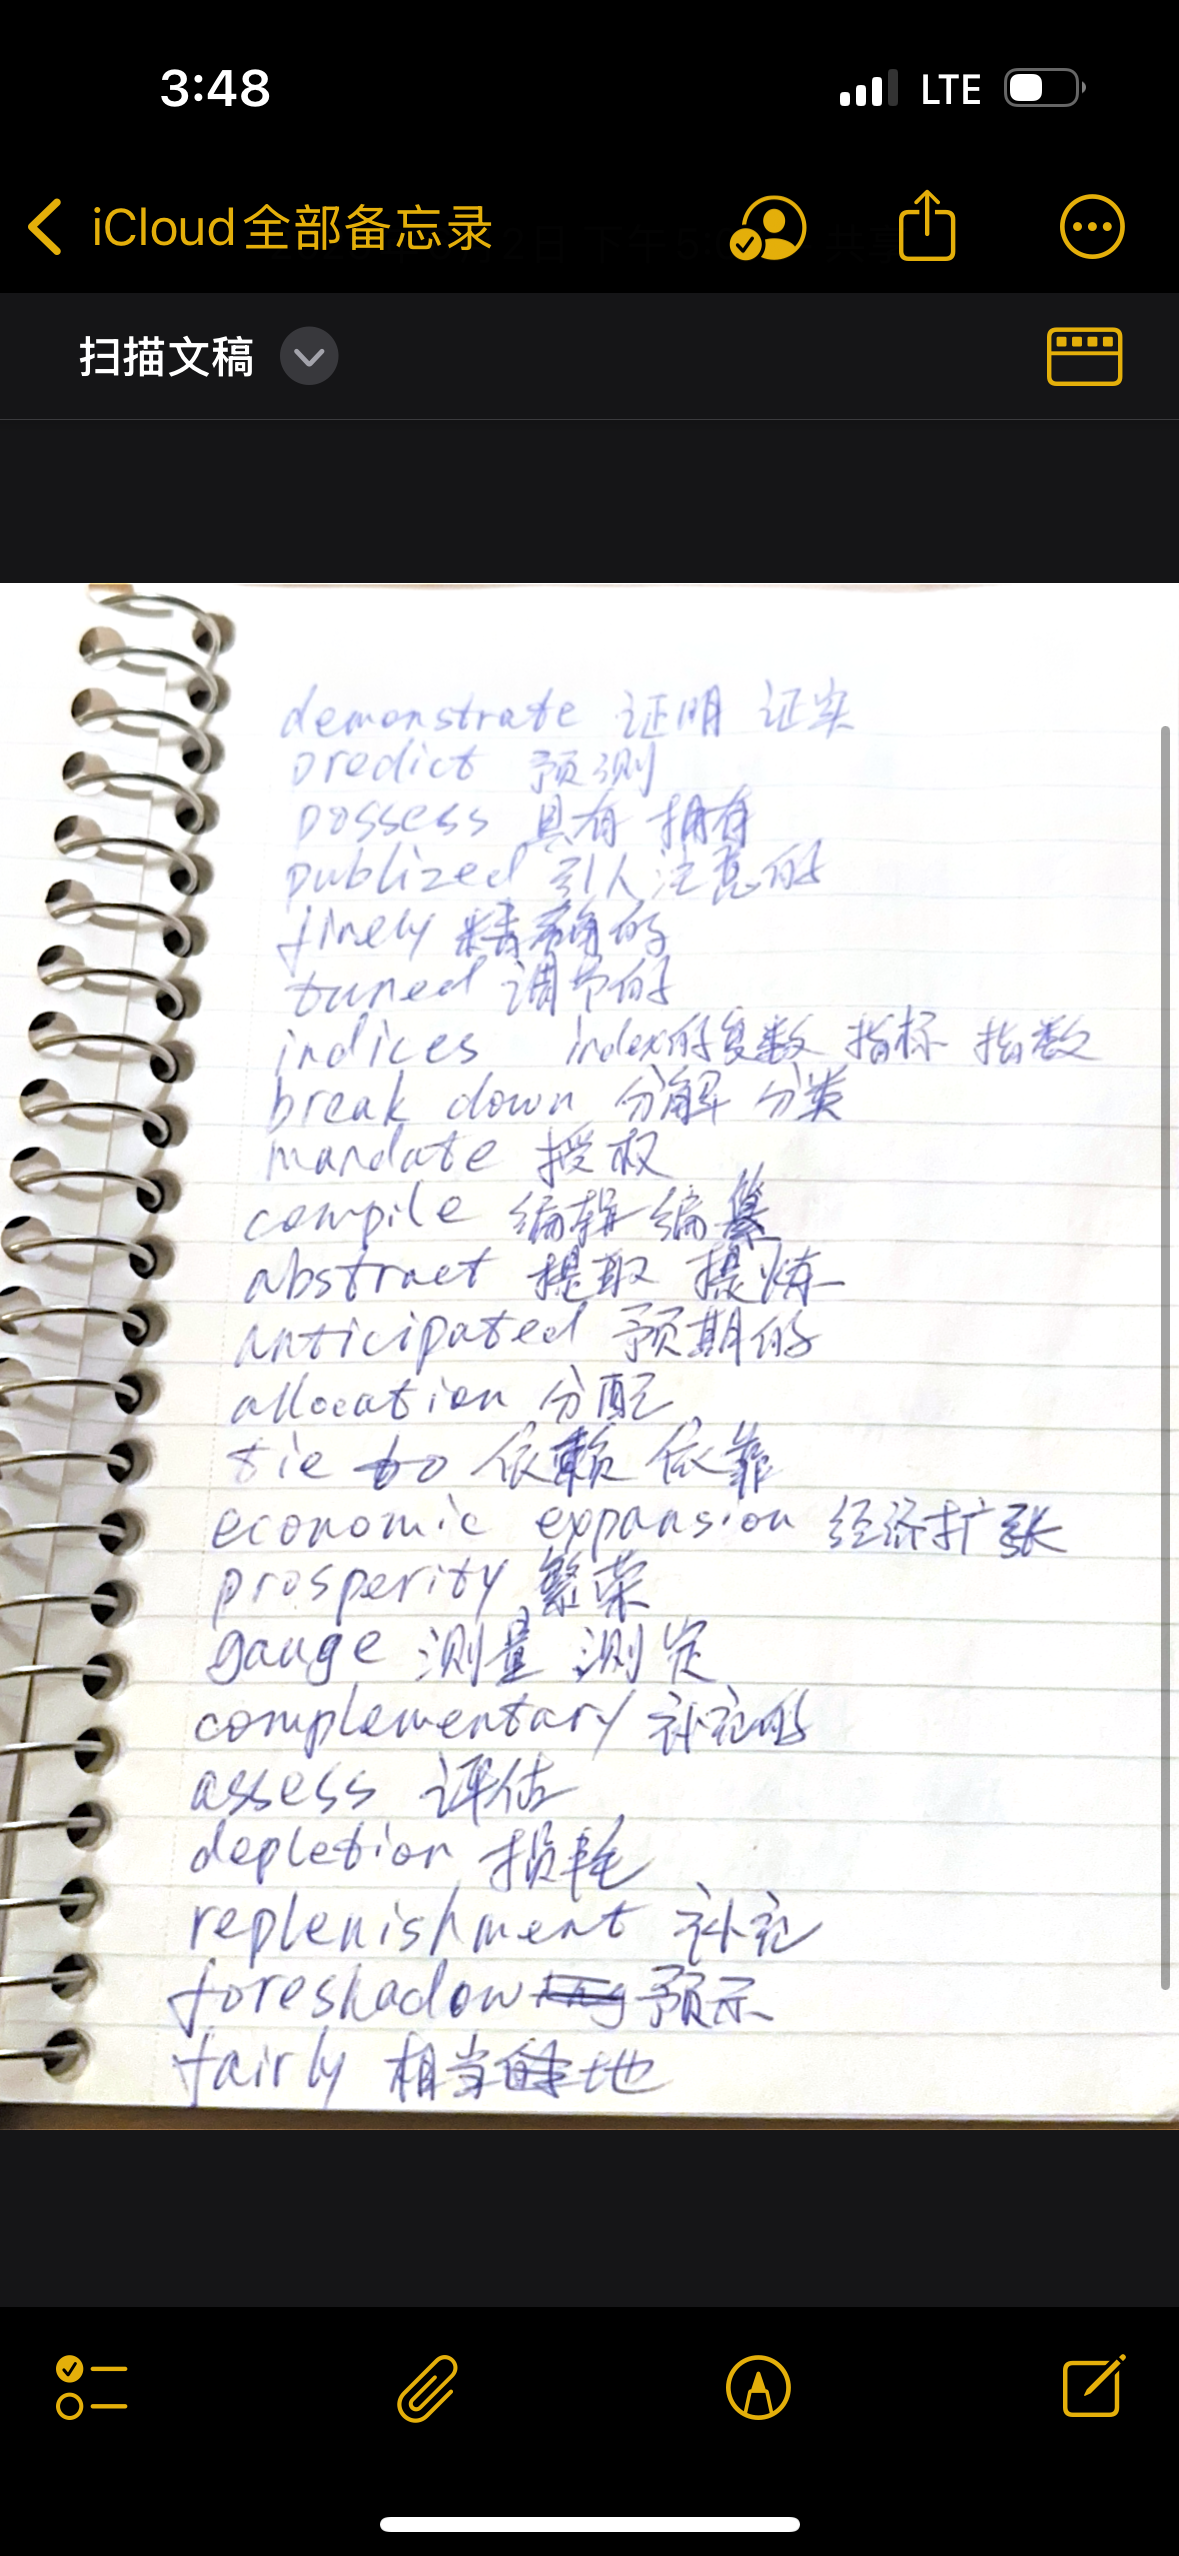 3:48 LTE
iCloud全部备忘录
扫描文稿
demonstrate 证明 证实
predict 预测
possess 具有 拥有
publized 引人注意的
finely 精确的
tuned 调节的
indices index的复数 指标 指数
break down 分解 分类
mandate 授权
compile 编辑 编纂
abstract 提取 提炼
anticipated 预期的
allocation 分配
tie to 依赖 依靠
economic expansion 经济扩张
prosperity 繁荣
gauge 测量 测定
complementary 补充的
assess 评估
depletion 损耗
replenishment 补充
foreshadow 预示
fairly 相当地